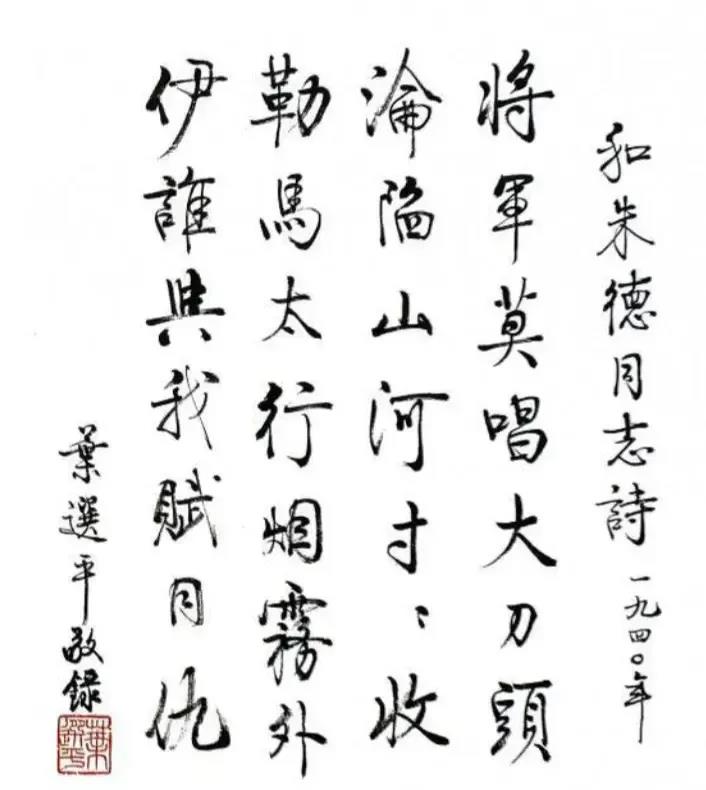 和朱德同志詩 一九四〇年
將軍莫唱大刀頭
淪陷山河寸〻收
勒馬太行烟霧外
伊誰與我賦同仇
葉選平敬録
葉選平